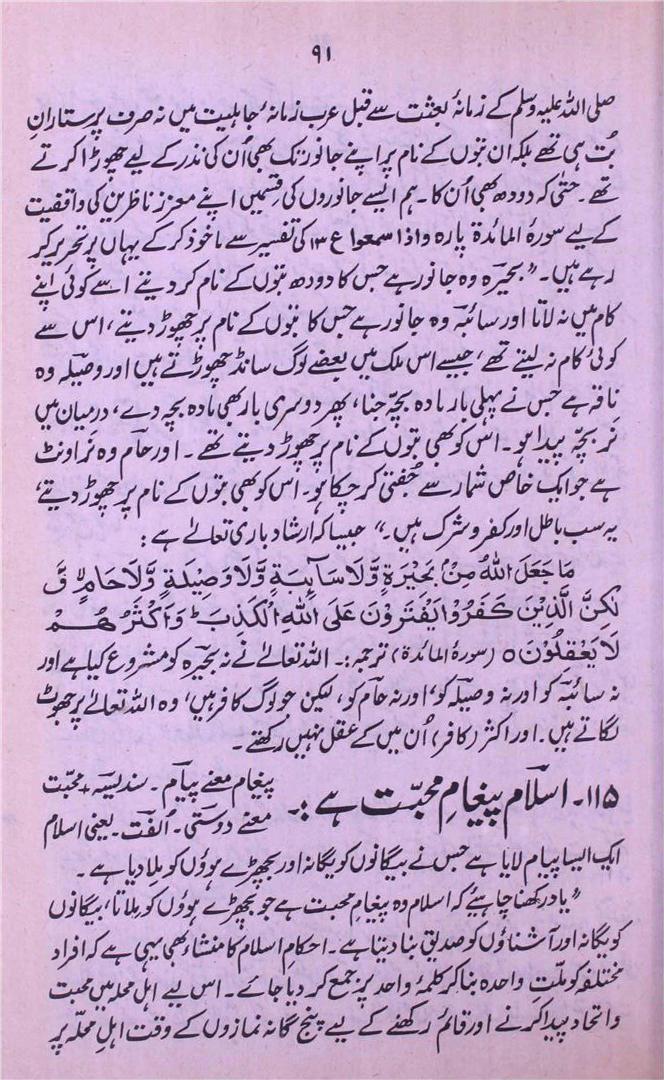 ۹۱
صلی اللہ علیہ وسلم کے زمانۂ بعثت سے قبل عرب زمانۂ جاہلیت میں نہ صرف پرستارانِ
بُت ہی تھے بلکہ ان بتوں کے نام پر اپنے جانور تک بھی اُن کی نذر کے لیے چھوڑا کرتے
تھے۔ حتٰی کہ دودھ بھی اُن کا۔ ہم ایسے جانوروں کی قسمیں اپنے معزز ناظرین کی واقفیت
کے لیے سورۂ المائدۃ پارہ واذا سمعوا ع ۱۳ کی تفسیر سے ماخوذ کر کے یہاں پر تحریر کر
رہے ہیں۔ "بحیرَہ وہ جانور ہے جس کا دودھ بتوں کے نام کر دیتے اسے کوئی اپنے
کام میں نہ لاتا اور سائبہ وہ جانور ہے جس کا بتوں کے نام پر چھوڑ دیتے، اس سے
کوئی کام نہ لیتے تھے، جیسے اس ملک میں بعضے لوگ سانڈ چھوڑتے ہیں اور وصیلہ وہ
ناقہ ہے جس نے پہلی بار مادہ بچّہ جنا، پھر دوسری بار بھی مادہ بچہ دے، درمیان میں
نر بچّہ پیدا ہو۔ اس کو بھی بتوں کے نام پر چھوڑ دیتے تھے۔ اور حام وہ نر اونٹ
ہے جو ایک خاص شمار سے جُفتی کر چکا ہو۔ اس کو بھی بتوں کے نام پر چھوڑ دیتے،
یہ سب باطل اور کفر و شرک ہیں۔" جیسا کہ ارشاد باری تعالےٰ ہے :
مَا جَعَلَ اللّٰهُ مِنْۢ بَحِيْرَةٍ وَّلَا سَآئِبَةٍ وَّلَا وَصِيْلَةٍ وَّلَا حَامٍ ۙ وَّ
لٰكِنَّ الَّذِيْنَ كَفَرُوْا يَفْتَرُوْنَ عَلَى اللّٰهِ الْكَذِبَ ؕ وَاَكْثَرُهُمْ
لَا يَعْقِلُوْنَ ٥ (سورۂ المائدۃ) ترجمہ:۔ اللہ تعالےٰ نے نہ بحیرَہ کو مشروع کیا ہے اور
نہ سائبہ کو اور نہ وصیلہ کو، اور نہ حام کو، لیکن جو لوگ کافر ہیں، وہ اللہ تعالےٰ پر جھوٹ
لگاتے ہیں۔ اور اکثر (کافر) اُن میں کے عقل نہیں رکھتے۔
۱۱۵۔ اسلام پیغامِ محبّت ہے :۔
پیغام معنے پیام۔ سندیسہ + محبّت
معنے دوستی۔ اُلفت۔ یعنی اسلام
ایک ایسا پیام لایا ہے جس نے بیگانوں کو یگانہ اور بچھڑے ہوؤں کو ملا دیا ہے۔
"یاد رکھنا چاہیئے کہ اسلام وہ پیغامِ محبت ہے جو بچھڑے ہوؤں کو ملاتا، بیگانوں
کو یگانہ اور آشناؤں کو صدیق بنا دیتا ہے۔ احکامِ اسلام کا منشاء بھی یہی ہے کہ افراد
مختلفہ کو ملّتِ واحدہ بنا کر کلمۂ واحد پر جمع کر دیا جائے۔ اس لیے اہل محلہ میں محبت
و اتحاد پیدا کرنے اور قائم رکھنے کے لیے پنج گانہ نمازوں کے وقت اہلِ محلّہ پر